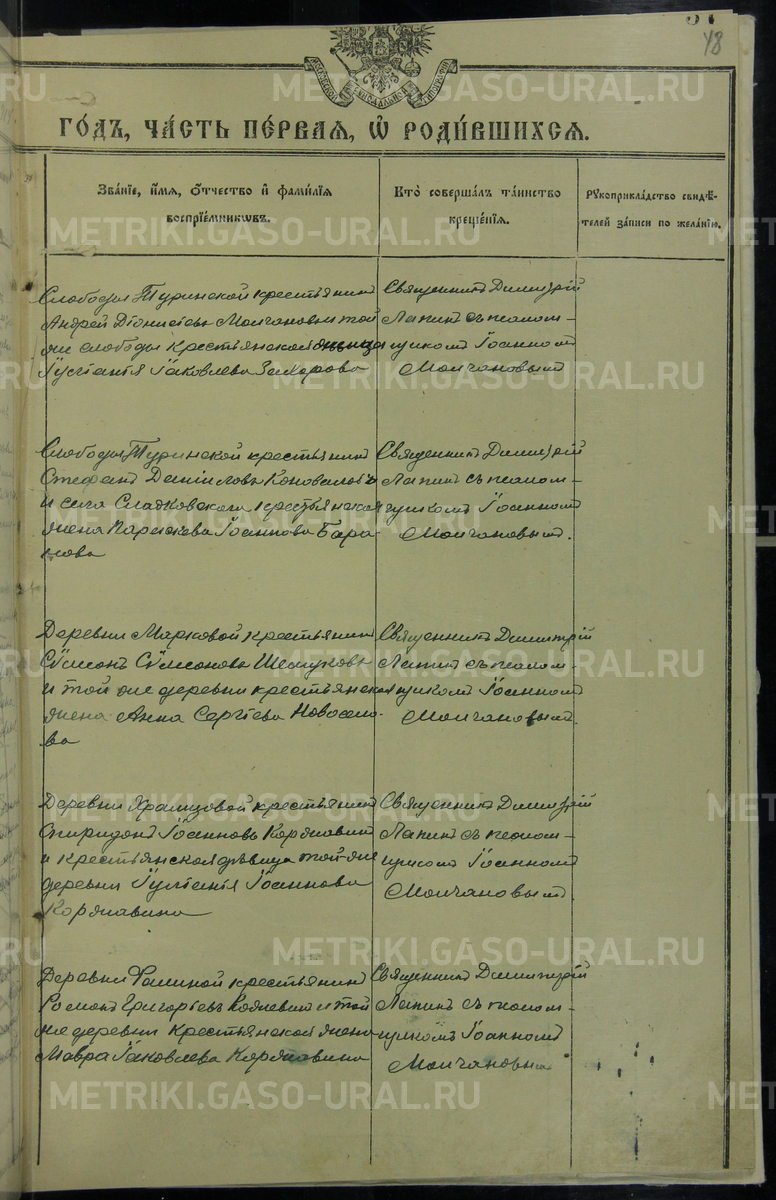 48
МОСКОВСКОЙ СѴНОДАЛЬНОЙ ТИПОГРАФІИ
ГО́ДЪ, ЧА́СТЬ ПЕ́РВАЯ, Ѡ҆ РОДИ́ВШИХСЯ.
Зва́нїе, и҆́мя, ѻ҆́тчество и҆ фами́лїя
воспрїе́мникѡвъ.
Кто̀ соверша́лъ та́инство
креще́нїя.
Рꙋкоприкла́дство свидѣ́-
телей за́писи по жела́нїю.
Слободы Туринской крестьянинъ
Андрей Діонисіевъ Молчановъ и той
же слободы крестьянская дѣвица
Іуліанія Іаковлева Захарова
Священникъ Димитрій
Лапинъ съ псалом-
щикомъ Іоанномъ
Молчановымъ
Слободы Туринской крестьянинъ
Стефанъ Даніиловъ Коноваловъ
и села Сладковскаго крестьянская
жена Параскева Іоаннова Бара-
нова
Священникъ Димитрій
Лапинъ съ псалом-
щикомъ Іоанномъ
Молчановымъ.
Деревни Марковой крестьянинъ
Сѵмеонъ Сѵмеоновъ Шешуковъ
и той же деревни крестьянская
жена Анна Сергіева Новосело-
ва
Священникъ Димитрій
Лапинъ съ псалом-
щикомъ Іоанномъ
Молчановымъ.
Деревни Храмцовой крестьянинъ
Спиридонъ Іоанновъ Коржавинъ
и крестьянская дѣвица той-же
деревни Іуліанія Іоаннова
Коржавина
Священникъ Димитрій
Лапинъ съ псалом-
щикомъ Іоанномъ
Молчановымъ.
Деревни Фоминой крестьянинъ
Романъ Григорьевъ и той
же деревни крестьянская жена
Мавра Іаковлева Коржавина
Священникъ Димитрій
Лапинъ съ псалом-
щикомъ Іоанномъ
Молчановымъ
METRIKI.GASO-URAL.RU